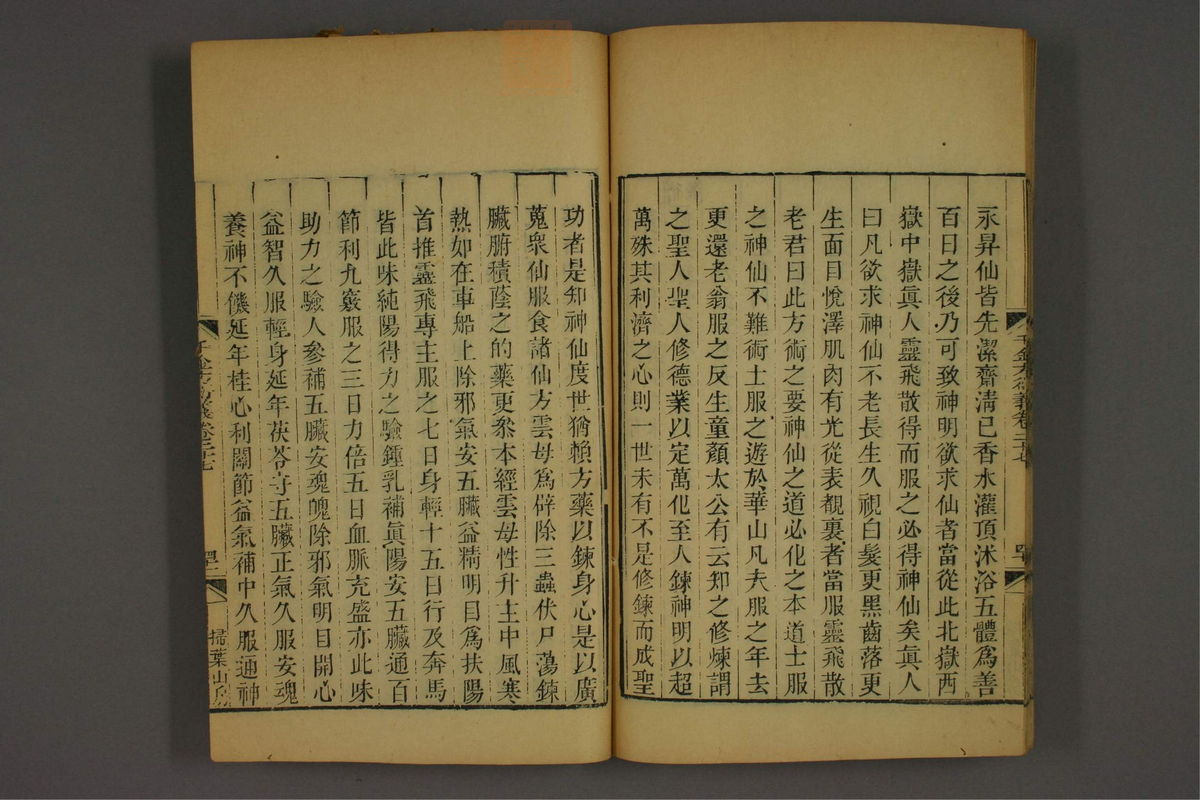 永昇仙皆先潔齋淸已香水灌頂沐浴五體爲善
百日之後乃可致神明欲求仙者當從此北嶽西
嶽中嶽眞人靈飛散得而服之必得神仙矣眞人
曰凡欲求神仙不老長生久視白髮更黑齒落更
生面目悅澤肌肉有光從表覩裏者當服靈飛散
老君曰此方術之要神仙之道必化之本道士服
之神仙不難術士服之遊於華山凡夫服之年去
更還老翁服之反生童顏太公有云知之修煉謂
之聖人聖人修德業以定萬化至人鍊神明以超
萬殊其利濟之心則一世未有不是修鍊而成聖
千金方衍義卷二十七
功者是知神仙度世猶賴方藥以鍊身心是以廣
蒐衆仙服食諸仙方雲母爲辟除三蟲伏尸蕩鍊
臟腑積蔭之的藥更叅本經雲母性升主中風寒
熱如在車船上除邪氣安五臟益精明目爲扶陽
首推靈飛專主服之七日身輕十五日行及奔馬
皆此味純陽得力之驗鍾乳補眞陽安五臟通百
節利九竅服之三日力倍五日血脈充盛亦此味
助力之驗人參補五臟安魂魄除邪氣明目開心
益智久服輕身延年茯苓守五臟正氣久服安魂
養神不饑延年桂心利關節益氣補中久服通神
千金方衍義卷二十七
掃葉山房